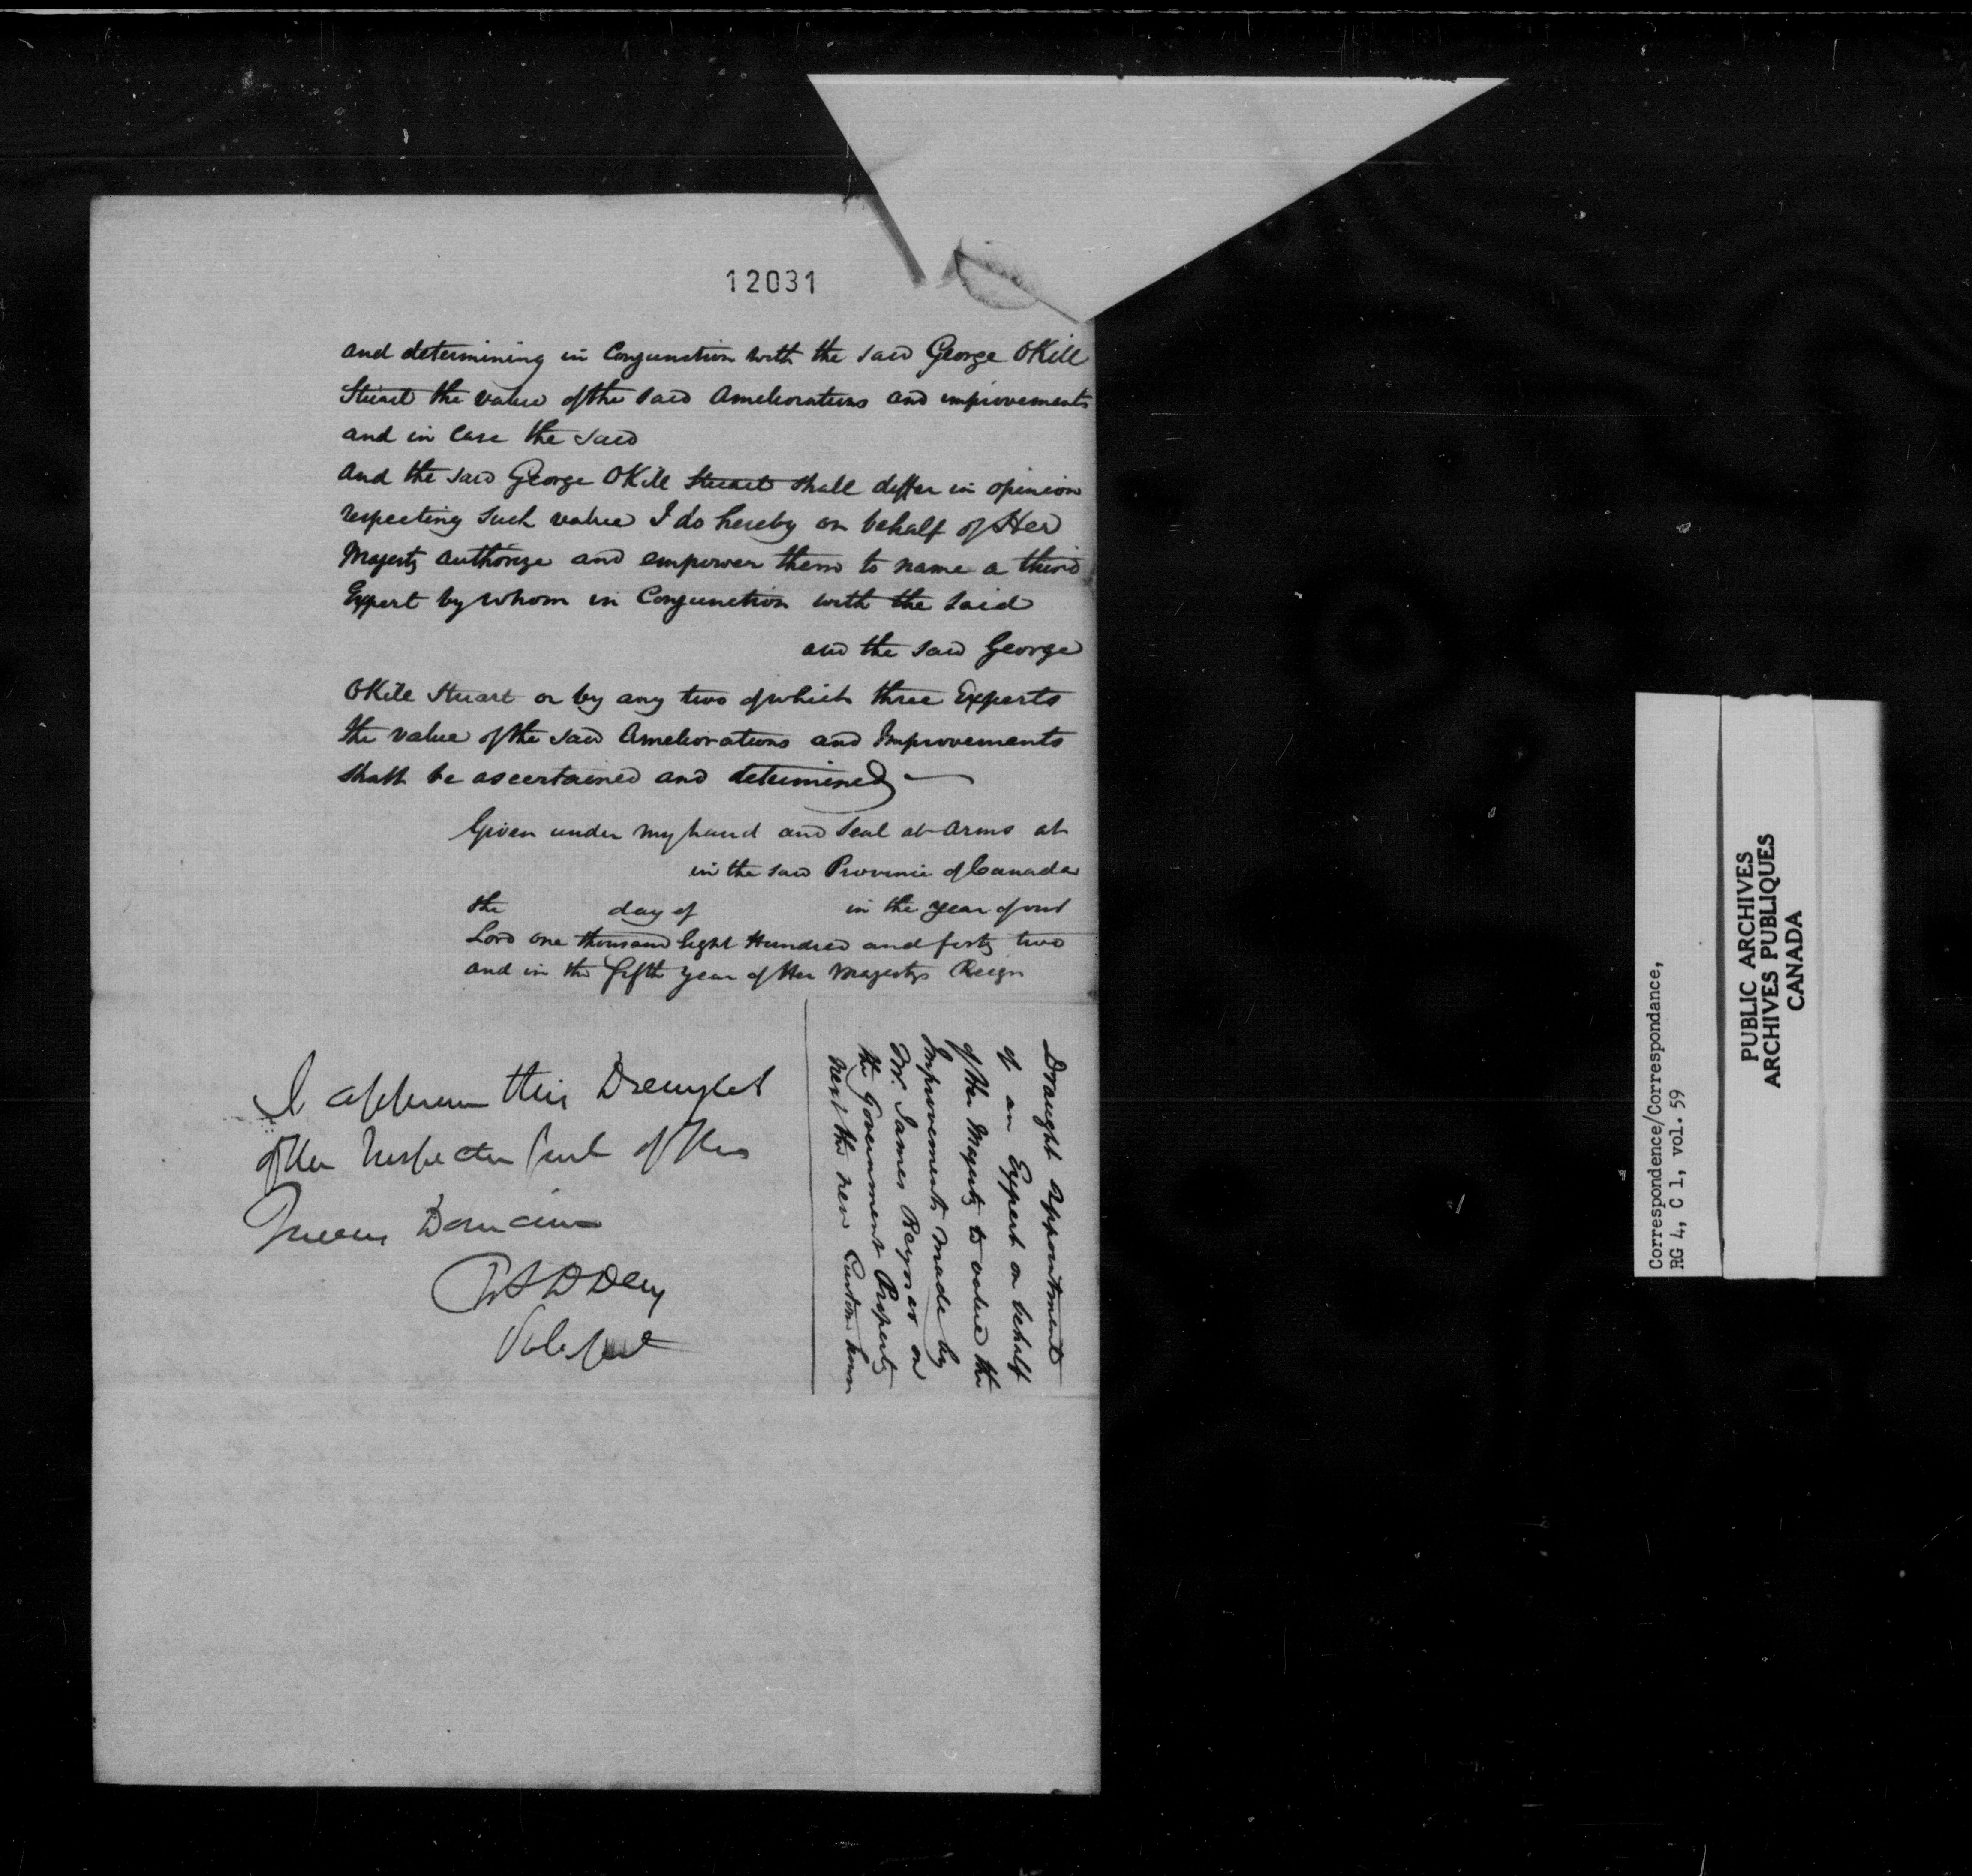 12031
and determining in Conjunction with the said George OKill
Stuart the value of the said Ameliorations and improvements
and in Case the said
and the said George OKill Stuart shall differ in opinion
respecting such value I do hereby on behalf of Her
Majesty authorize and empower them to name a third
Expert by whom in Conjunction with the said
and the said George
OKill Stuart or by any two of which three Experts
the value of the said Ameliorations and Improvements
shall be ascertained and determined
Given under my hand and Seal at Arms at
in the said Province of Canada
the day of in the year of our
Lord one thousand Eight Hundred and forty two
and in the fifth year of Her Majestys Reign
I approve this Draught
of the Inspector Genl of the
Queens Domain
Draught Appointment
of an Expert on behalf
of Her Majesty to value the
Improvements made by
Mr. James on
the Government Property
next the new Custom house
Correspondence/Correspondance,
RG 4, C 1, vol. 59
PUBLIC ARCHIVES
ARCHIVES PUBLIQUES
CANADA